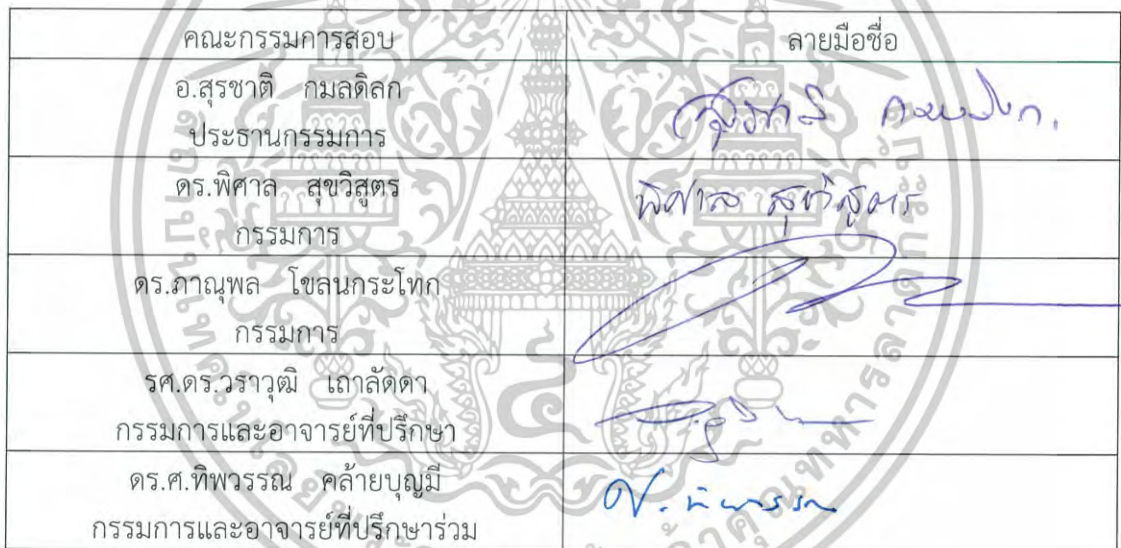 คณะกรรมการสอบ ลายมือชื่อ
อ.สุรชาติ กมลดิลก
ประธานกรรมการ
สุรชาติ กมลดิลก.
ดร.พิศาล สุขวิสูตร
กรรมการ
พิศาล สุขวิสูตร
ดร.ภาณุพล โขลนกระโทก
กรรมการ
รศ.ดร.วราวุฒิ เถาลัดดา
กรรมการและอาจารย์ที่ปรึกษา
ดร.ศ.ทิพวรรณ คล้ายบุญมี
กรรมการและอาจารย์ที่ปรึกษาร่วม
ศ.ทิพวรรณ